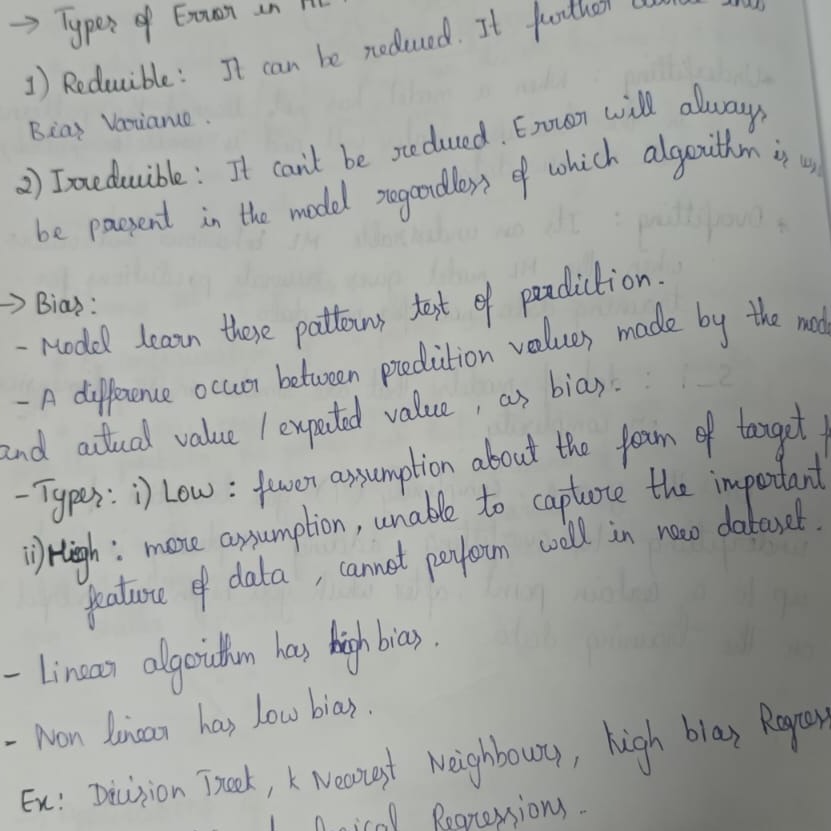 → Types of Error in
1) Reducible: It can be reduced. It further
Bias Variance.
2) Irreducible: It can't be reduced. Error will always
be present in the model regardless of which algorithm is
→ Bias:
- Model learn these patterns test of prediction.
- A difference occur between prediction values made by the
and actual value / expected value, as bias.
- Types: i) Low: fewer assumption about the form of target
ii) High: more assumption, unable to capture the important
feature of data, cannot perform well in new dataset.
- Linear algorithm has high bias.
- Non linear has low bias.
Ex: Decision Treek, k Nearest Neighbours, high bias
Regressions.